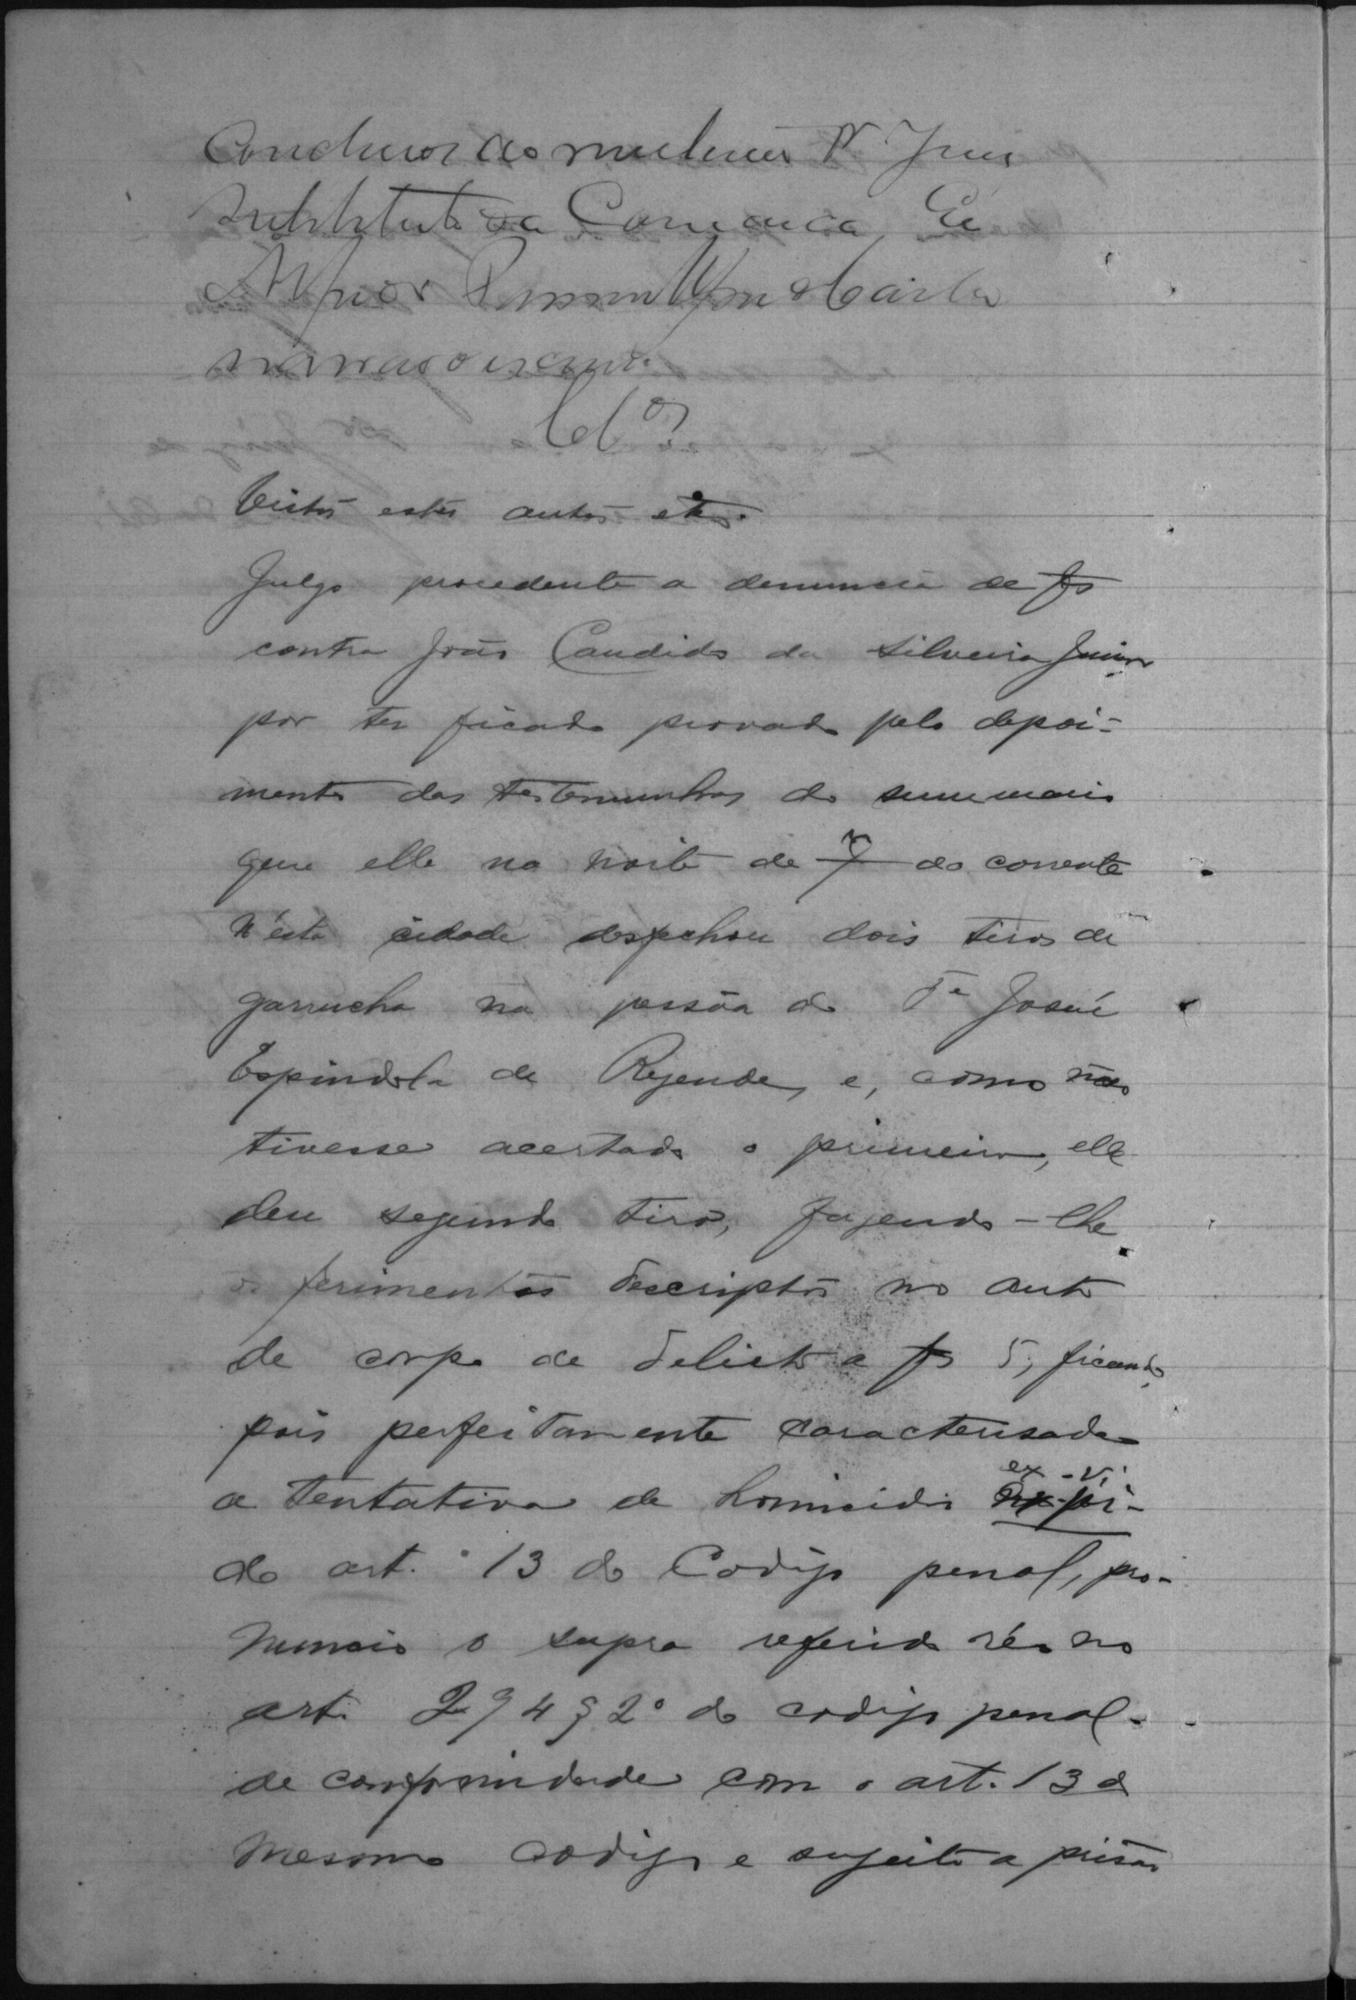 Conclusos ao meritissimo Dr Juiz
Substituto da Comarca, Eu
escrivão.
Clºs
Vistos estes autos etc.
Julgo procedente a denuncia de fs
contra João Candido da Silveira Junior
por ter ficado provado pelo depoi-
mento das testemunhas do summario
que elle na noite de 7 do corrente
n'esta cidade despechou dois tiros de
garrucha na pessôa do Te Josué
Espindola de Rezende, e, como não
tivesse acertado o primeiro, elle
deu segundo tiro, fazendo-lhe
os ferimentos descriptos no auto
de corpo de delicto a fs 5, ficando,
pois perfeitamente caracterisada
a tentativa de homicidio ex-vi
do art. 13 do Codigo penal, pro-
nuncio o supra referido réo no
art. 294 § 2º do codigo penal-
de comformidade com o art. 13 do
mesmo codigo e sujeito a prisão